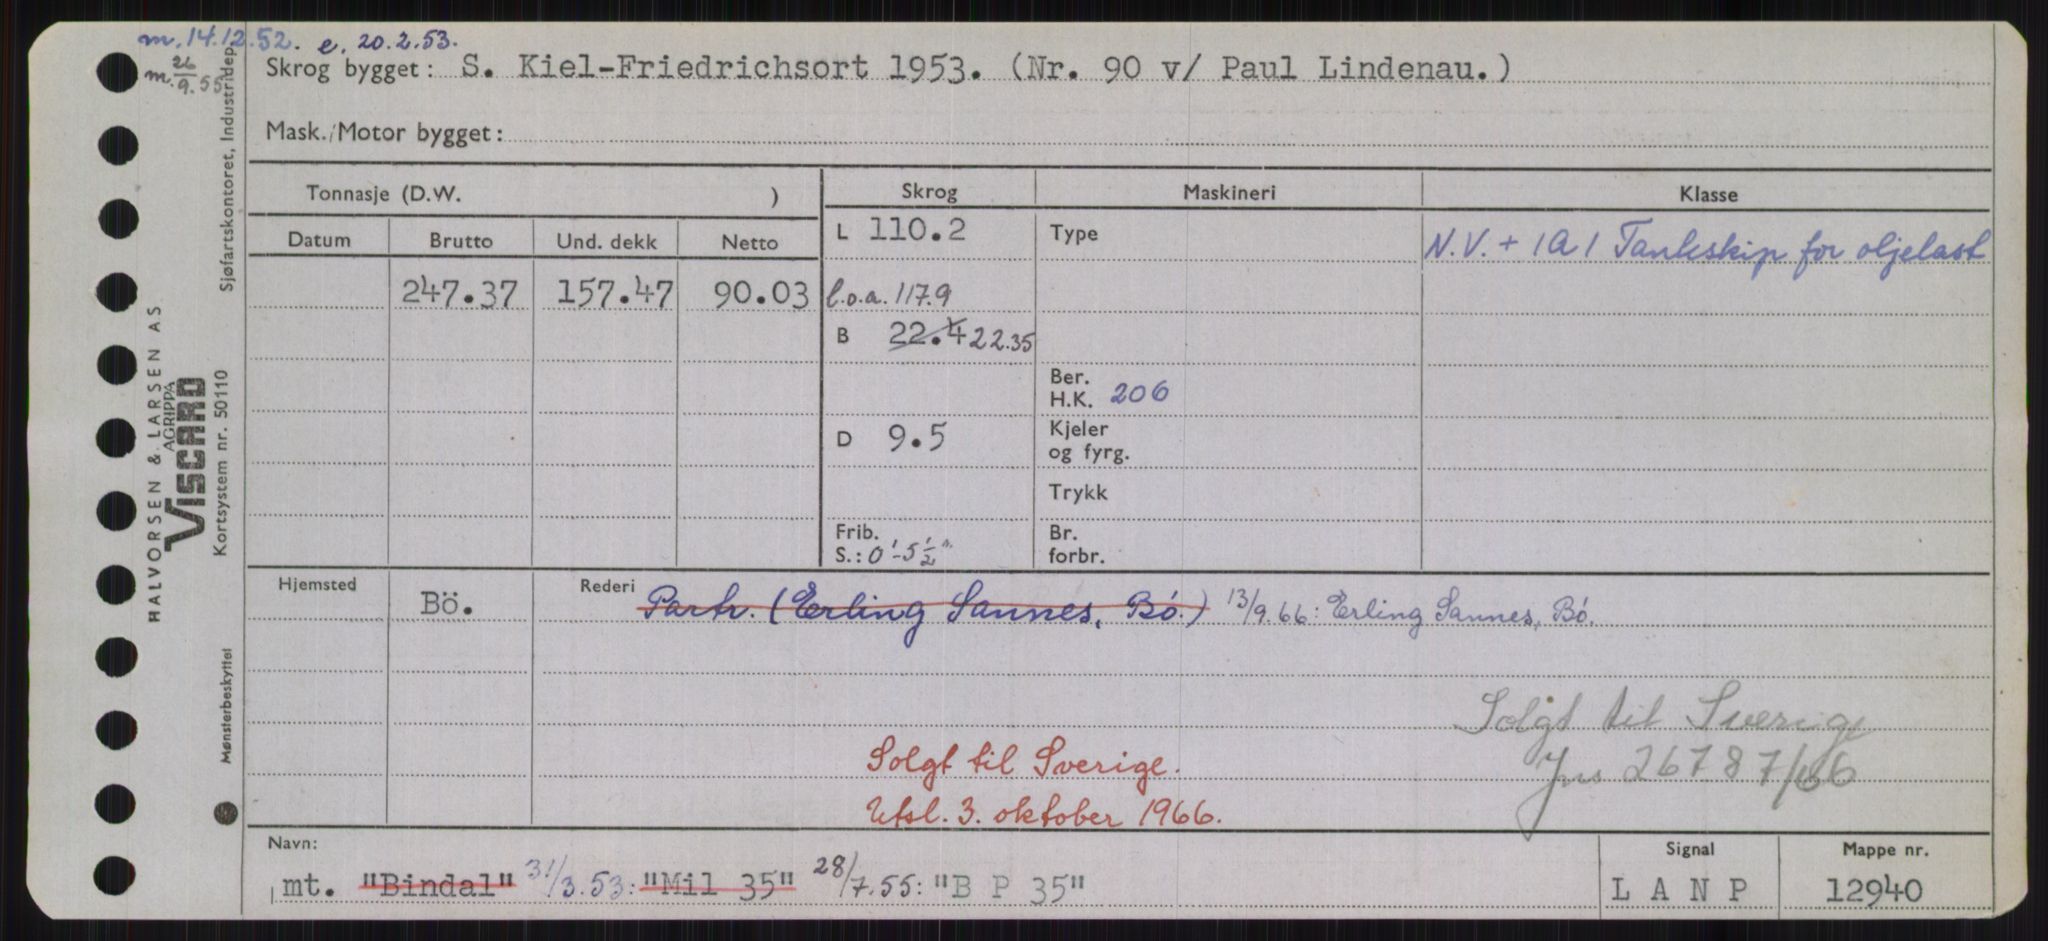 m. 14.12.52. e. 20.2.53.
m. 26/9.55
Skrog bygget: S. Kiel-Friedrichsort 1953. (Nr. 90 v/ Paul Lindenau.)
Mask./Motor bygget:
Tonnasje (D.W. ) Skrog Maskineri Klasse
Datum Brutto Und. dekk Netto L 110.2 Type N.V. + 1A1 Tankskip for oljelast
247.37 157.47 90.03 l.o.a. 117.9
B 22.4 22.35
Ber.
H.K. 206
D 9.5 Kjeler
og fyrg.
Trykk
Frib. Br.
S.: 0'-5 1/2" forbr.
Hjemsted Bö. Rederi Partr. (Erling Sannes, Bö.) 13/9.66: Erling Sannes, Bö.
Solgt til Sverige
Jnr 26787/66
Solgt til Sverige.
Utsl. 3. oktober 1966.
Navn: Signal Mappe nr.
mt. "Bindal" 31/3.53: "Mil 35" 28/7.55: "B P 35" L A N P 12940
HALVORSEN & LARSEN AS
AGRIPPA
VISCARD
Kortsystem nr. 50110
Sjøfartskontoret, Industridep
Mønsterbeskyttet